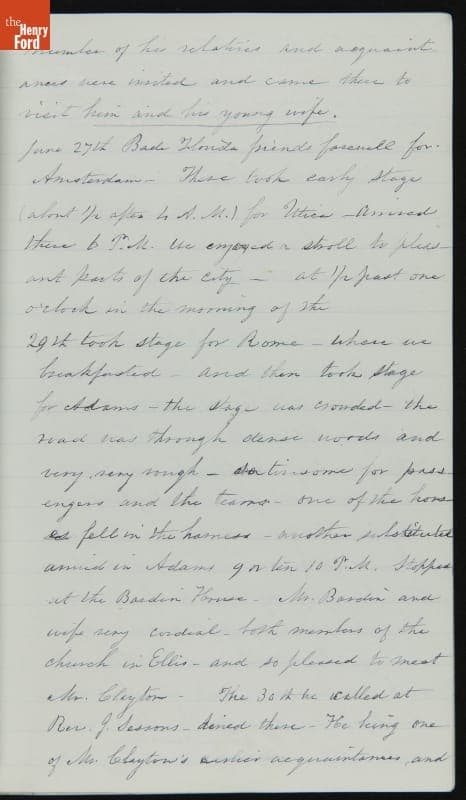 the
Henry
Ford
number of his relatives and acquaint
ances were invited and came there to
visit him and his young wife.
June 27th Bade Florida friends farewell for
Amsterdam - There took early stage
(about 1/2 after 4 A.M.) for Utica - arrived
there 6 P.M. We enjoyed a stroll to pleas-
ant parts of the city - at 1/2 past one
o'clock in the morning of the
29th took stage for Rome - where we
breakfasted - and then took stage
for Adams - the stage was crowded - the
road was through dense woods and
very, very rough - tiresome for pass-
engers and the teams - one of the hors
es fell in the harness - another substituted
arrived in Adams 9 or ten 10 P.M. Stopped
at the Bardin House - Mr. Bardin and
wife very cordial - both members of the
church in Ellis - and so pleased to meet
Mr. Clayton - The 30th he called at
Rev. J. Sessons - dined there - He being one
of Mr. Clayton's earlier acquaintances, and